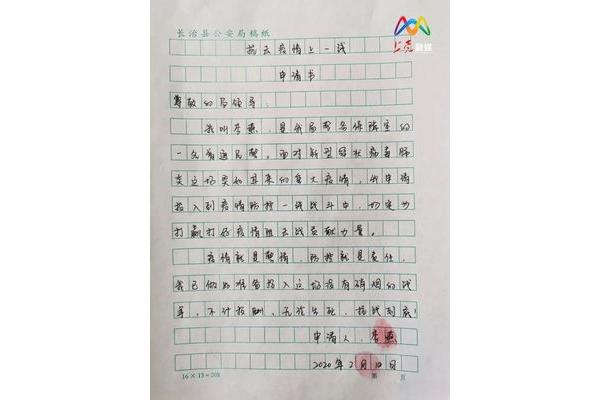 上党融媒
长治县公安局稿纸
抗击疫情上一线
申请书
尊敬的局领导:
我叫李燕,是我局警务保障室的
一名普通民警。面对新型冠状病毒肺
炎这场突如其来的重大疫情,我申请
投入到疫情防控一线战斗中,为坚决
打赢打好疫情阻击战贡献力量。
疫情就是警情,防控就是责任,
我已做好准备投入这场没有硝烟的战
争,不计报酬,无论生死,抗战到底!
申请人:李燕
2020年2月10日
16×13=208
第 页